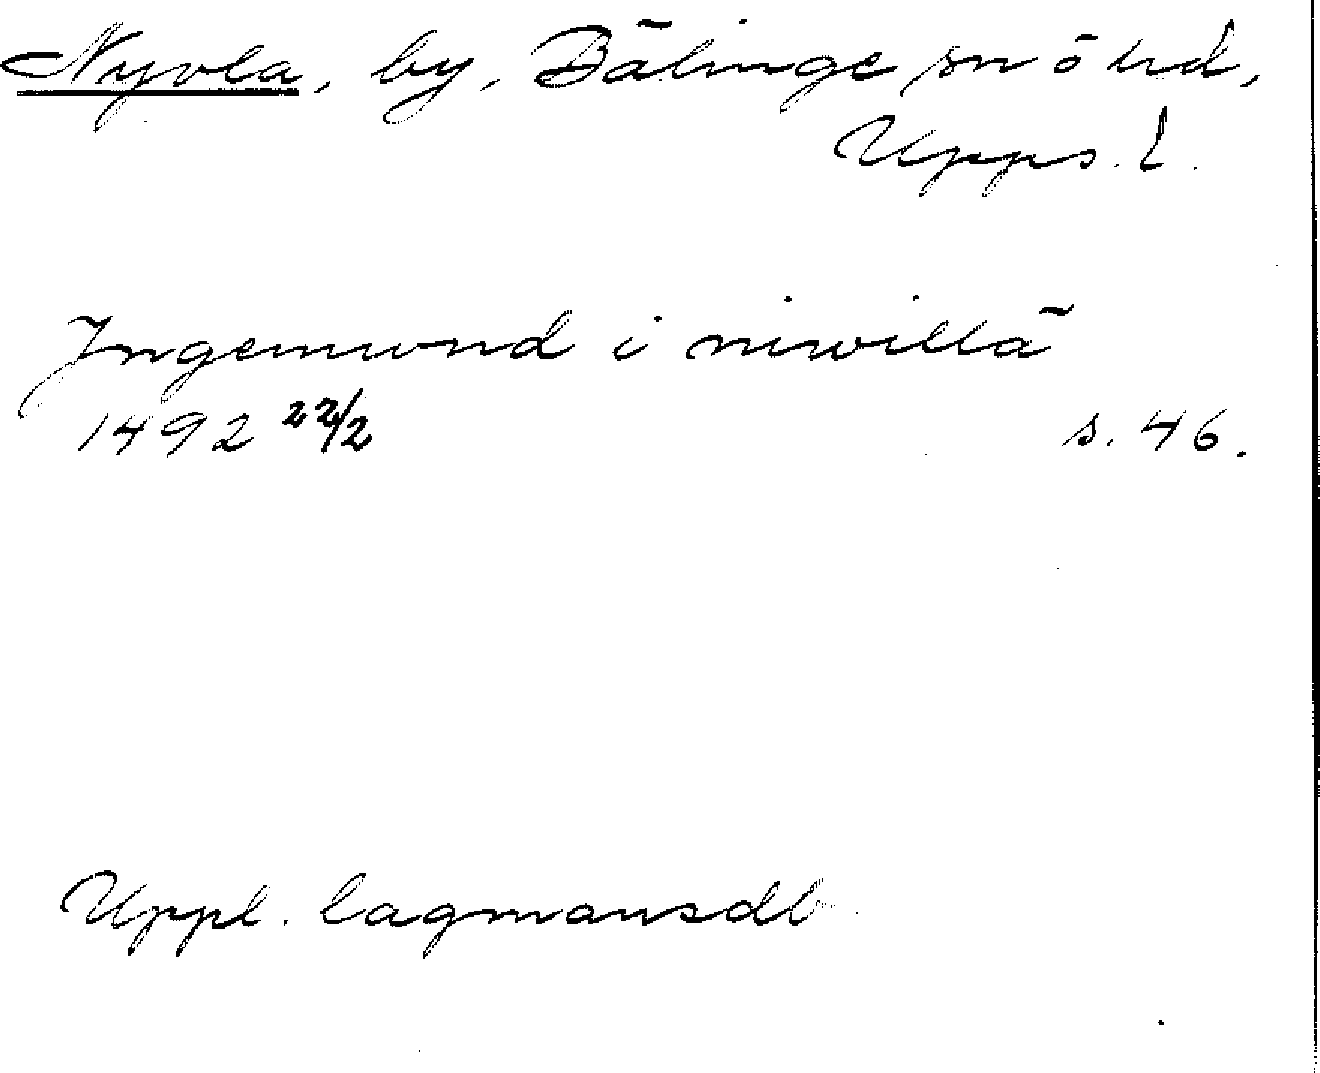 Nyvla, by, Bälinge sn ö hd,
Upps. l.
Ingemund i niwillä
1492 22/2 s. 46.
Uppl. lagmansdb